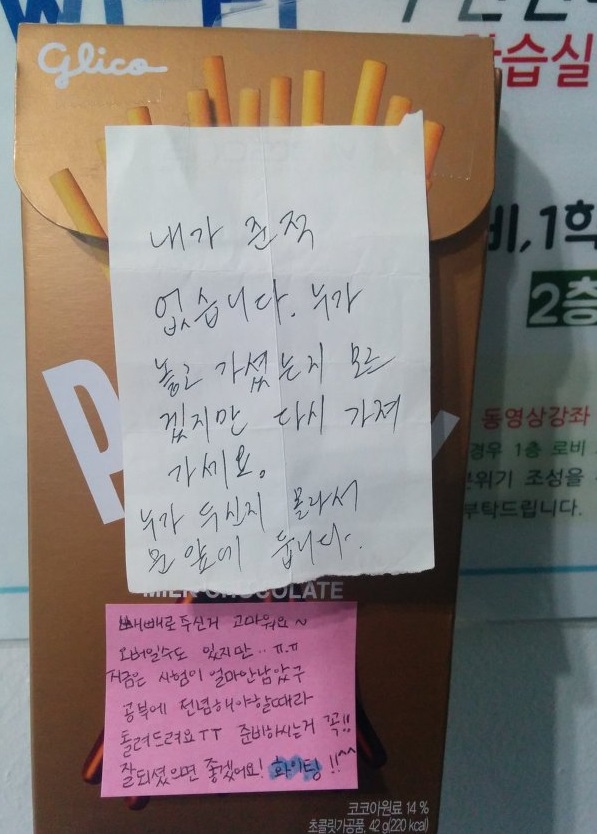 Wi-Fi
Glico
습실
비,1학
2층
내가 준적
없습니다. 누가
놓고 가셨는지 모르
겠지만 다시 가져
가세요.
누가 두신지 몰라서
문 앞에 둡니다.
동영상강좌
경우 1층 로비
분위기 조성을
부탁드립니다.
MILK CHOCOLATE
빼빼로 두신거 고마워요~
오버일수도 있지만..ㅠ.ㅠ
지금은 시험이 얼마안남았구
공부에 전념해야할때라
돌려드려요TT 준비하시는거 꼭!!
잘되셨으면 좋겠어요! 화이팅!!^^
코코아원료 14 %
초콜릿가공품, 42 g(220 kcal)